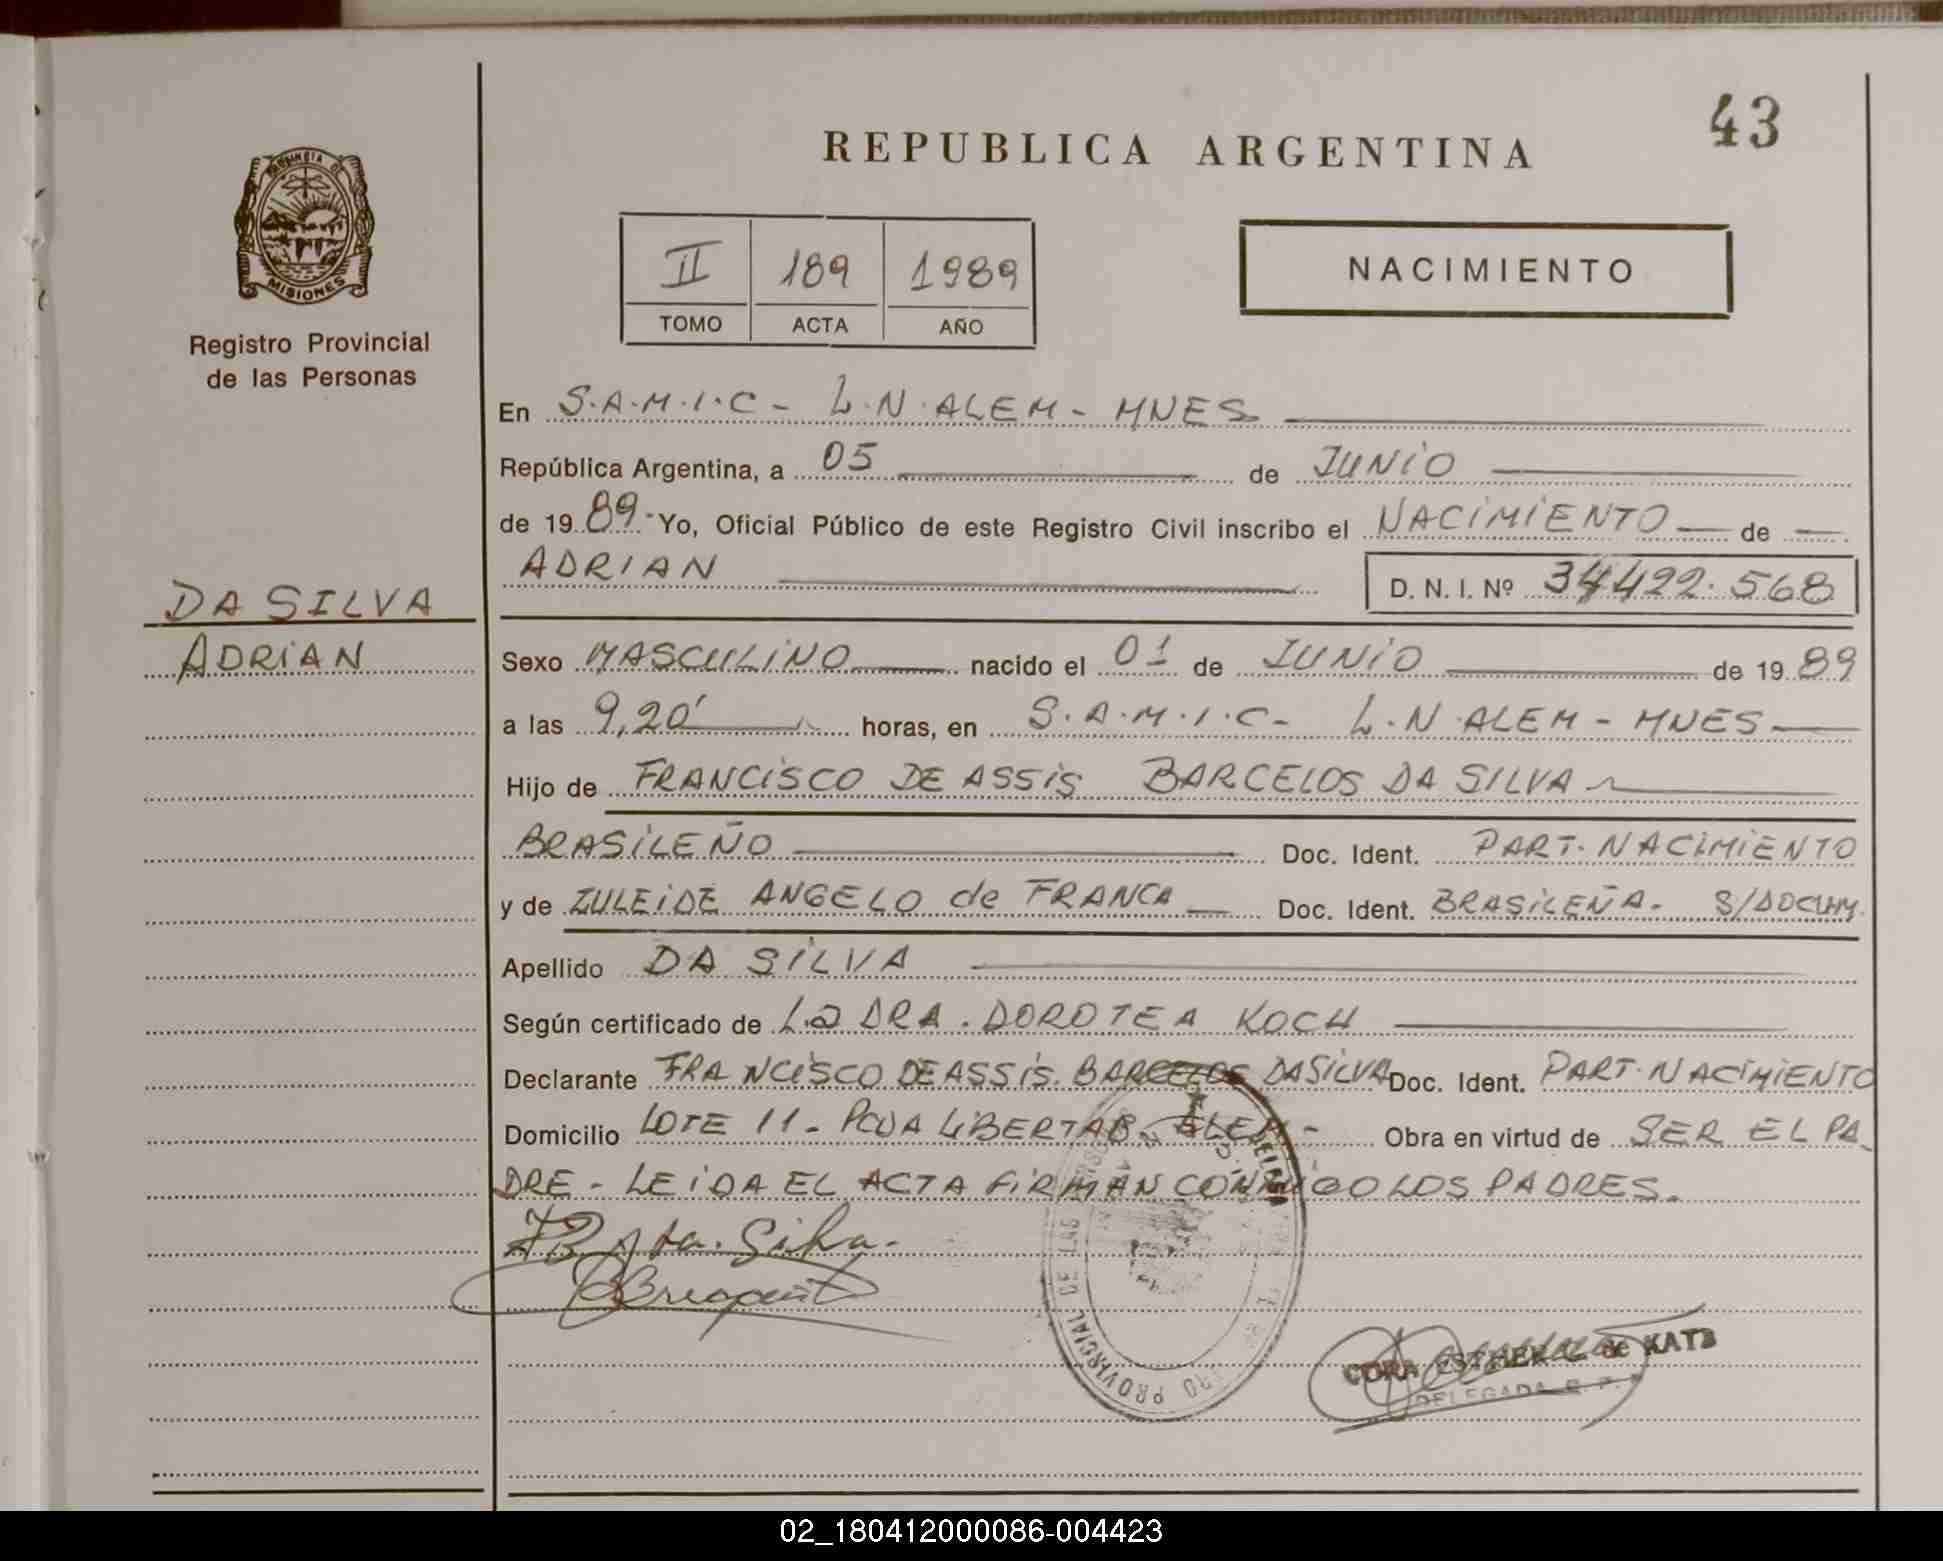 43
REPUBLICA ARGENTINA
PROVINCIA DE
MISIONES
Registro Provincial
de las Personas
II 189 1989
TOMO ACTA AÑO
NACIMIENTO
En S.A.M.I.C - L.N.ALEM - MNES
República Argentina, a 05 de JUNIO
de 19 89 - Yo, Oficial Público de este Registro Civil inscribo el NACIMIENTO de
ADRIAN D. N. I. Nº 34422.568
DA SILVA
ADRIAN
Sexo MASCULINO nacido el 01 de JUNIO de 19 89
a las 9,20' horas, en S.A.M.I.C- L.N.ALEM - MNES
Hijo de FRANCISCO DE ASSIS BARCELOS DA SILVA
BRASILEÑO Doc. Ident. PART. NACIMIENTO
y de ZULEIDE ANGELO de FRANCA Doc. Ident. BRASILEÑA - S/DOCUM.
Apellido DA SILVA
Según certificado de La DRA. DOROTEA KOCH
Declarante FRANCISCO DE ASSIS. BARCELOS DA SILVA Doc. Ident. PART. NACIMIENTO
Domicilio LOTE 11 - PCUA LIBERTAD - ALEM - Obra en virtud de SER EL PA
DRE - LEIDA EL ACTA FIRMAN CONMIGO LOS PADRES.
Silva.
PROVINCIAL DE LAS
CORA ESTHER de KATZ
DELEGADA R. P.
02_180412000086-004423